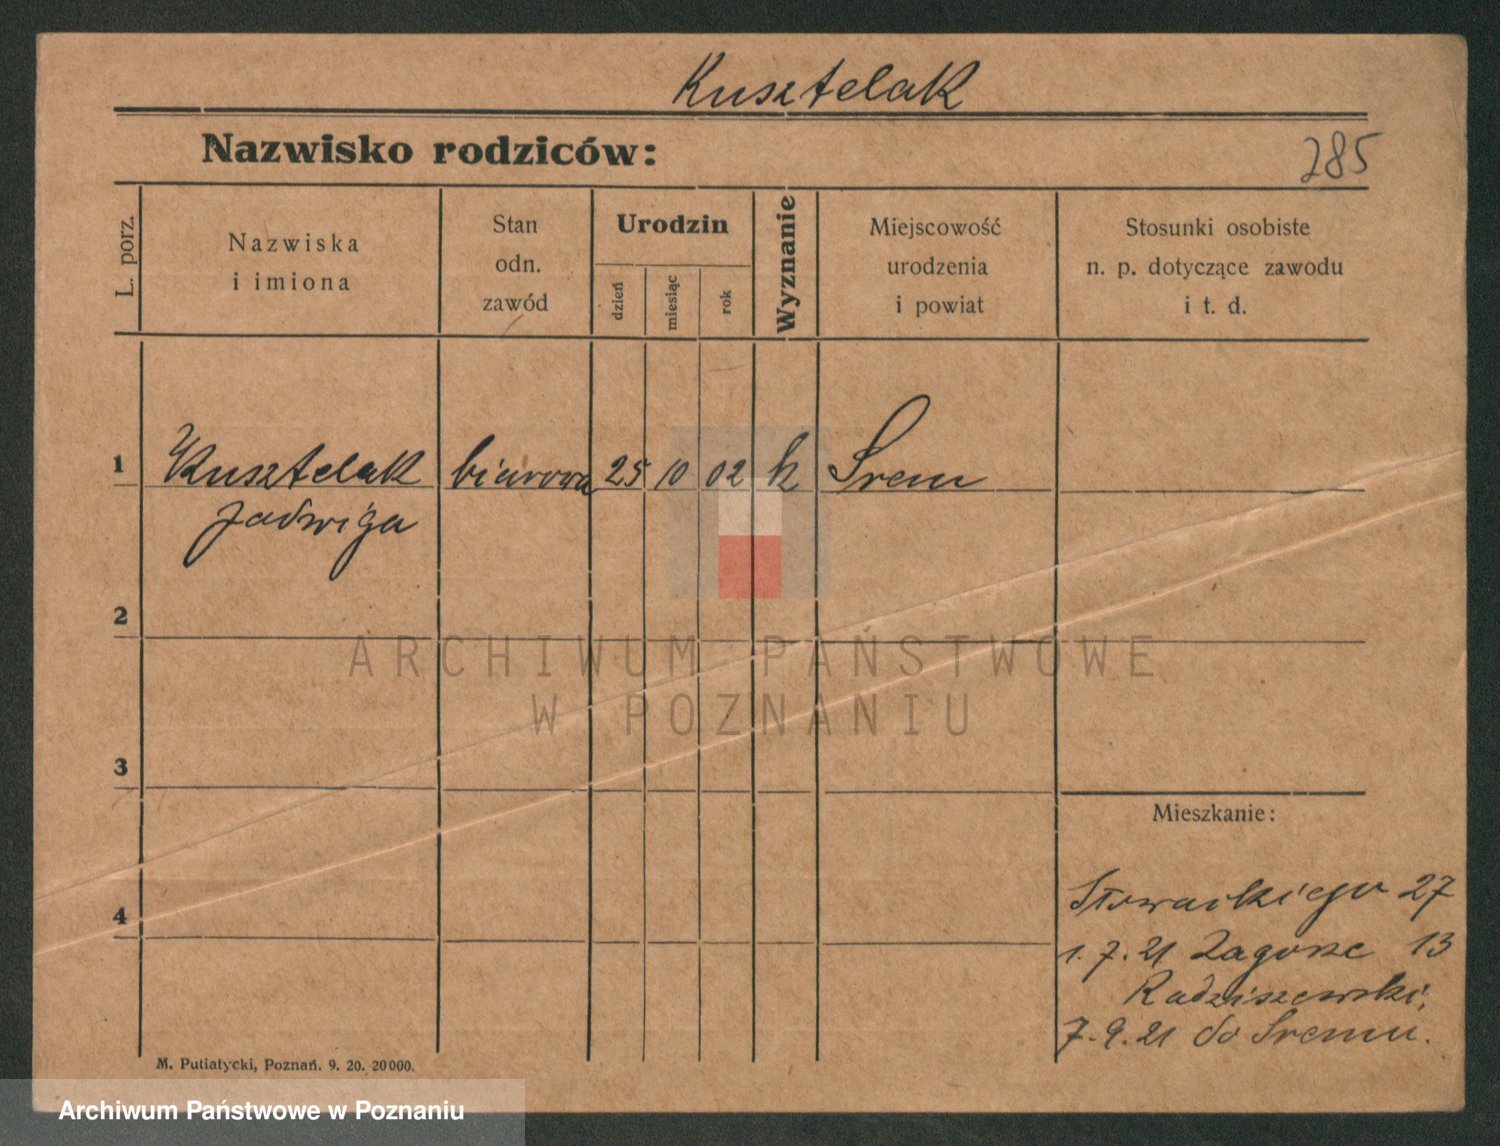 Kusztelak
Nazwisko rodziców:
285
L. porz.
Nazwiska
i imiona
Stan
odn.
zawód
Urodzin
dzień
miesiąc
rok
Wyznanie
Miejscowość
urodzenia
i powiat
Stosunki osobiste
n. p. dotyczące zawodu
i t. d.
1 Kusztelak biurowa 25 10 02 k Śrem
Jadwiga
2
ARCHIWUM PAŃSTWOWE
W POZNANIU
3
Mieszkanie:
4
Słowackiego 27
1. 7. 21 Zagórze 13
Radziszewski,
7. 9. 21 do Śremu.
M. Putiatycki, Poznań. 9. 20. 20 000.
Archiwum Państwowe w Poznaniu